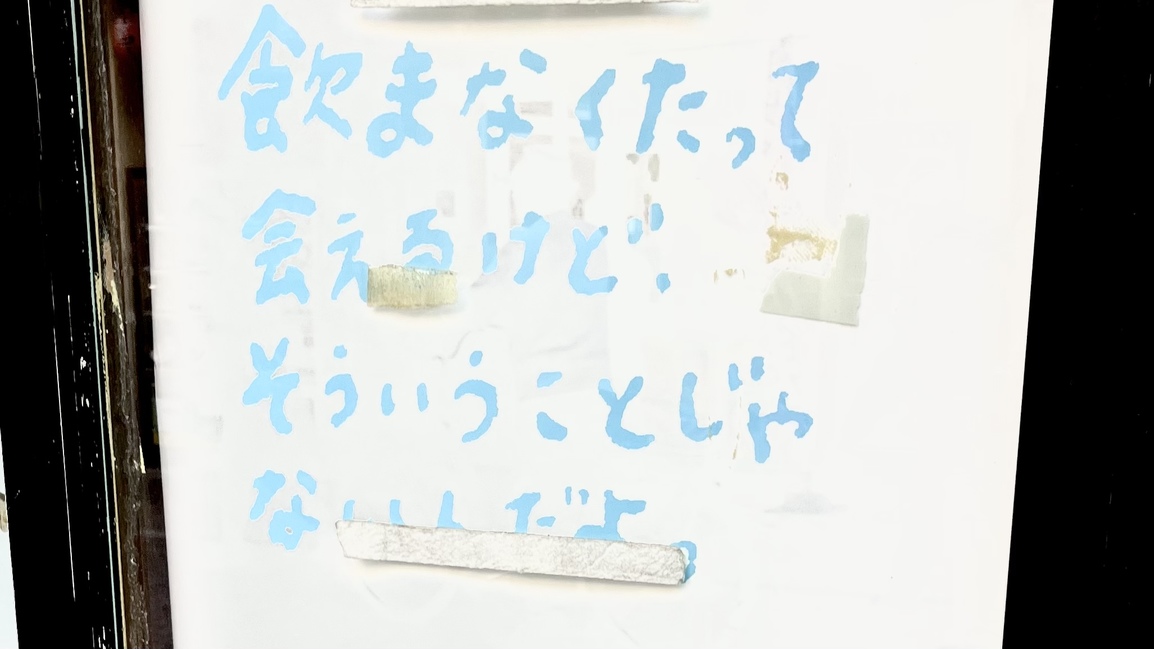 飲まなくたって
会えるけど、
そういうことじゃ
ないんだよ。